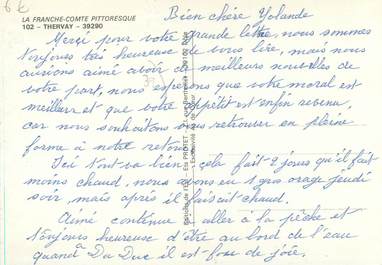 6€
LA FRANCHE-COMTE PITTORESQUE
102 - THERVAY - 39290
Bien chère Yolande
Merçi pour votre grande lettre, nous sommes
toujours très heureuse de vous lire, mais nous
aurions aimé avoir de meilleurs nouvelles de
votre part, nous espérons que votre moral est
meilleurs et que votre appétit est enfin revenu,
car nous souhaitons vous retrouver en pleine
forme à notre retour.
Ici tout va bien, cela fait 2 jours qu'il fait
moins chaud, nous avons eu 1 gros orage jeudi
soir, mais après il faisait chaud.
Aimé continue d'aller à la pêche et
toujours heureuse d'être au bord de l'eau
quand à Du Duc il est fose de joie.
Editions de l'Est - Ets PROTET